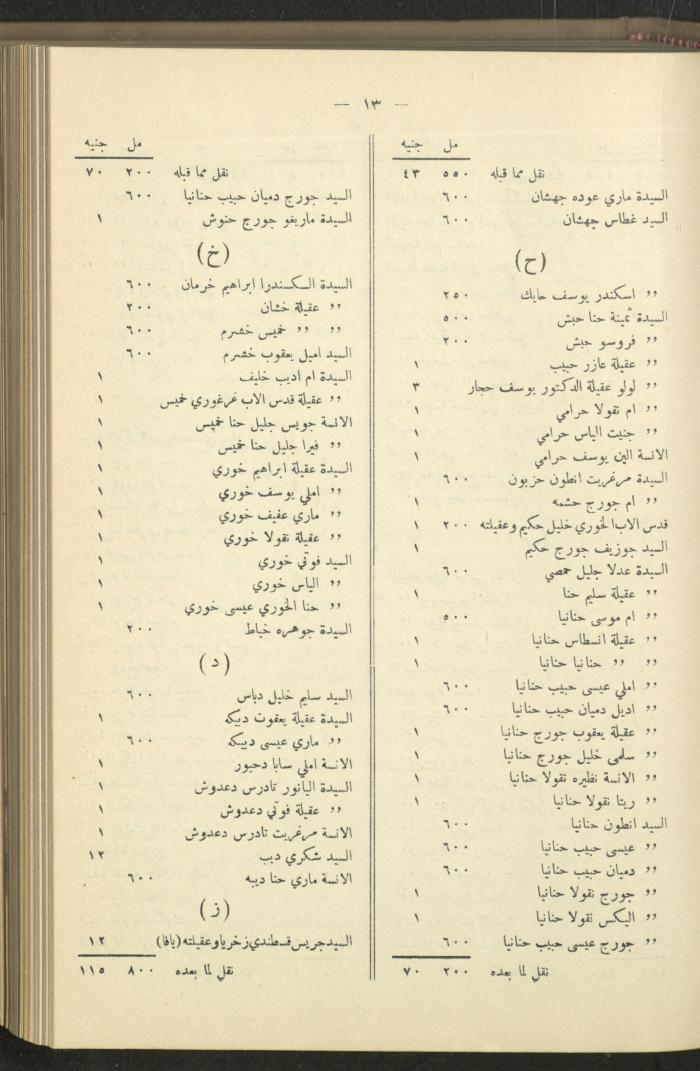 — ١٣ —
مل جنيه
نقل مما قبله ٥٥٠ ٤٣
السيدة ماري عوده جهشان ٦٠٠
السيد غطاس جهشان ٦٠٠
(ح)
,, اسكندر يوسف حايك ٢٥٠
السيدة ثمينة حنا حبش ٥٠٠
,, فروسو حبش ٢٠٠
,, عقيلة عازر حبيب ١
,, لولو عقيلة الدكتور يوسف حجار ٣
,, ام نقولا حرامي ١
,, جنيت الياس حرامي ١
الانسة الين يوسف حرامي ١
السيدة مرغريت انطون حزبون ٦٠٠
,, ام جورج حشمه ١
قدس الاب الخوري خليل حكيم وعقيلته ٢٠٠ ١
السيد جوزيف جورج حكيم ١
السيدة عدلا جليل حمصي ٦٠٠
,, عقيلة سليم حنا ١
,, ام موسى حنانيا ٥٠٠
,, عقيلة انسطاس حنانيا ١
,, ,, حنانيا حنانيا ١
,, املي عيسى حبيب حنانيا ٦٠٠
,, اديل دميان حبيب حنانيا ٦٠٠
,, عقيلة يعقوب جورج حنانيا ١
,, سلمى خليل جورج حنانيا ١
,, الانسة نظيره نقولا حنانيا ١
,, ريتا نقولا حنانيا ١
السيد انطون حنانيا ٦٠٠
,, عيسى حبيب حنانيا ٦٠٠
,, دميان حبيب حنانيا ٦٠٠
,, جورج نقولا حنانيا ١
,, اليكس نقولا حنانيا ١
,, جورج عيسى حبيب حنانيا ٦٠٠
نقل لما بعده ٢٠٠ ٧٠
مل جنيه
نقل مما قبله ٢٠٠ ٧٠
السيد جورج دميان حبيب حنانيا ٦٠٠
السيدة ماريغو جورج حنوش ١
(خ)
السيدة الكسندرا ابراهيم خرمان ٦٠٠
,, عقيلة خشان ٢٠٠
,, ,, خميس خشرم ٦٠٠
السيد اميل يعقوب خشرم ٦٠٠
السيدة ام اديب خليف ١
,, عقيلة قدس الاب غرغوري خميس ١
الانسة جويس جليل حنا خميس ١
,, فيرا جليل حنا خميس ١
السيدة عقيلة ابراهيم خوري ١
,, املي يوسف خوري ١
,, ماري عفيف خوري ١
,, عقيلة نقولا خوري ١
السيد فوتي خوري ١
,, الياس خوري ١
,, حنا الخوري عيسى خوري ١
السيدة جوهره خياط ٢٠٠
(د)
السيد سليم خليل دباس ٦٠٠
السيدة عقيلة يعقوت دبيكه ١
,, ماري عيسى دبيكه ٦٠٠
الانسة املي سابا دحبور ١
السيدة اليانور تادرس دعدوش ١
,, عقيلة فوتي دعدوش ١
الانسة مرغريت تادرس دعدوش ١
السيد شكري ديب ١٢
الانسة ماري حنا ديبه ٦٠٠
(ز)
السيد جريس قسطندي زخريا وعقيلته (يافا) ١٢
نقل لما بعده ٨٠٠ ١١٥